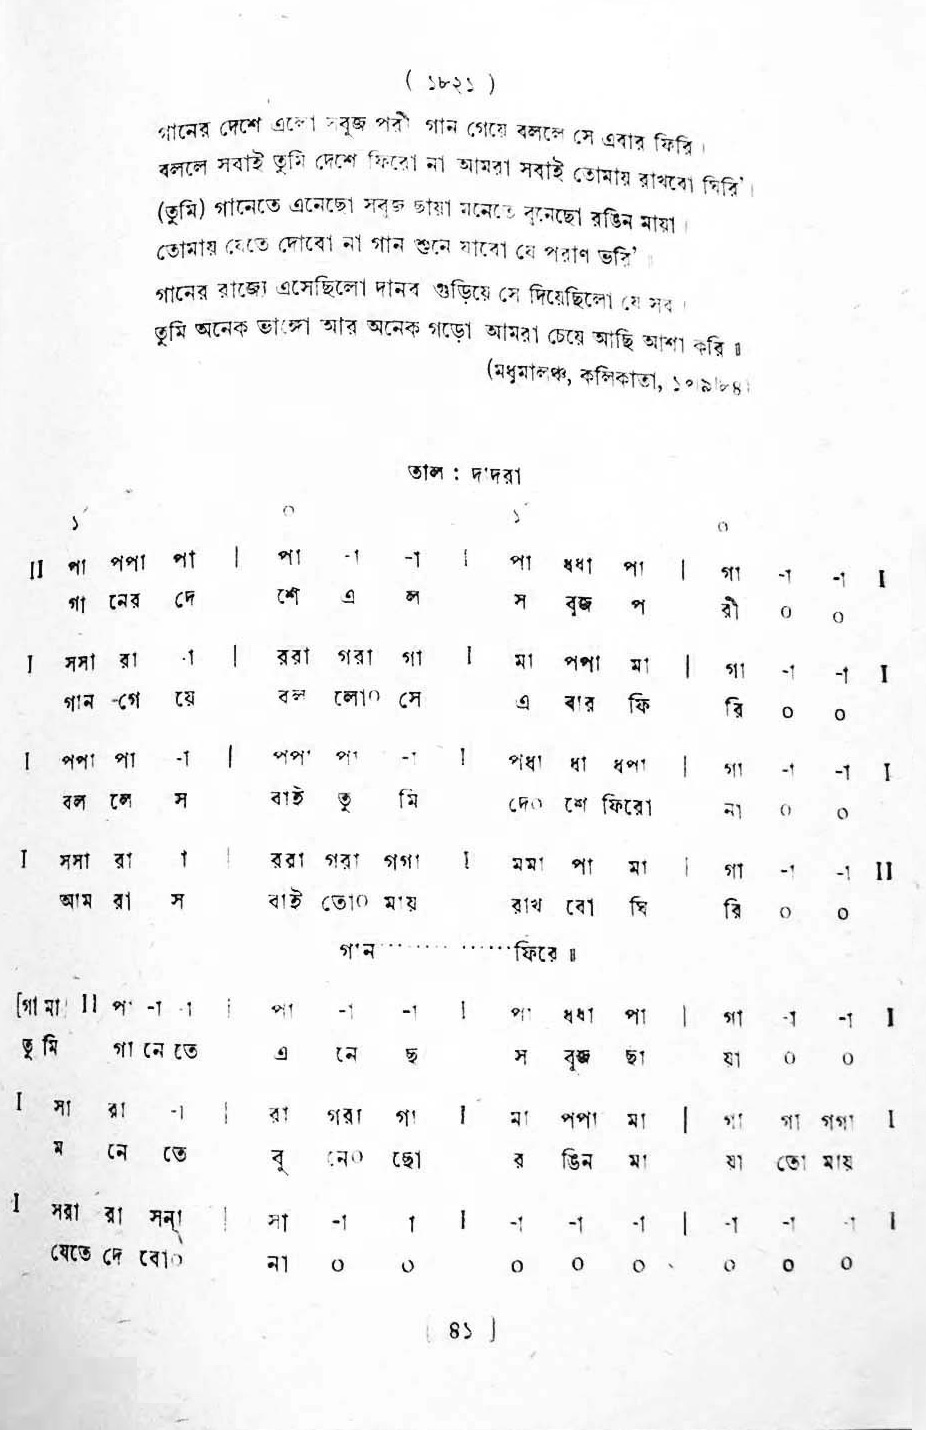 ( ১৮২১ )
গানের দেশে এলো সবুজ পরী গান গেয়ে বললে সে এবার ফিরি।
বললে সবাই তুমি দেশে ফিরো না আমরা সবাই তোমায় রাখবো ঘিরি'।
(তুমি) গানেতে এনেছো সবুজ ছায়া মনেতে বুনেছো রঙিন মায়া।
তোমায় যেতে দোবো না গান শুনে যাবো যে পরাণ ভরি' ॥
গানের রাজ্যে এসেছিলো দানব গুড়িয়ে সে দিয়েছিলো যে সব।
তুমি অনেক ভাঙ্গো আর অনেক গড়ো আমরা চেয়ে আছি আশা করি ॥
(মধুমালঞ্চ, কলিকাতা,
তাল : দ'দরা
১´ ০ ১´ ০
II পা পপা পা | পা -া -া | পা ধধা পা | গা -া -া I
গা নের দে শে এ ল স বুজ প রী ০ ০
I সসা রা -া | ররা গরা গা I মা পপা মা | গা -া -া I
গান -গে য়ে বল লো০ সে এ বার ফি রি ০ ০
I পপা পা -া | পপা পা -া I পধা ধা ধপা | গা -া -া I
বল লে স বাই তু মি দে০ শে ফিরো না ০ ০
I সসা রা া | ররা গরা গগা I মমা পা মা | গা -া -া II
আম রা স বাই তো০ মায় রাখ বো ঘি রি ০ ০
গান ············ফিরে ॥
[গা মা] II পা -া -া | পা -া -া I পা ধধা পা | গা -া -া I
তু মি গা নে তে এ নে ছ স বুজ ছা য়া ০ ০
I সা রা -া | রা গরা গা I মা পপা মা | গা গা গগা I
ম নে তে বু নে০ ছো র ঙিন মা য়া তো মায়
I সরা রা সন্া | সা -া া I -া -া -া | -া -া -া I
যেতে দে বো০ না ০ ০ ০ ০ ০ ০ ০ ০
[ ৪১ ]